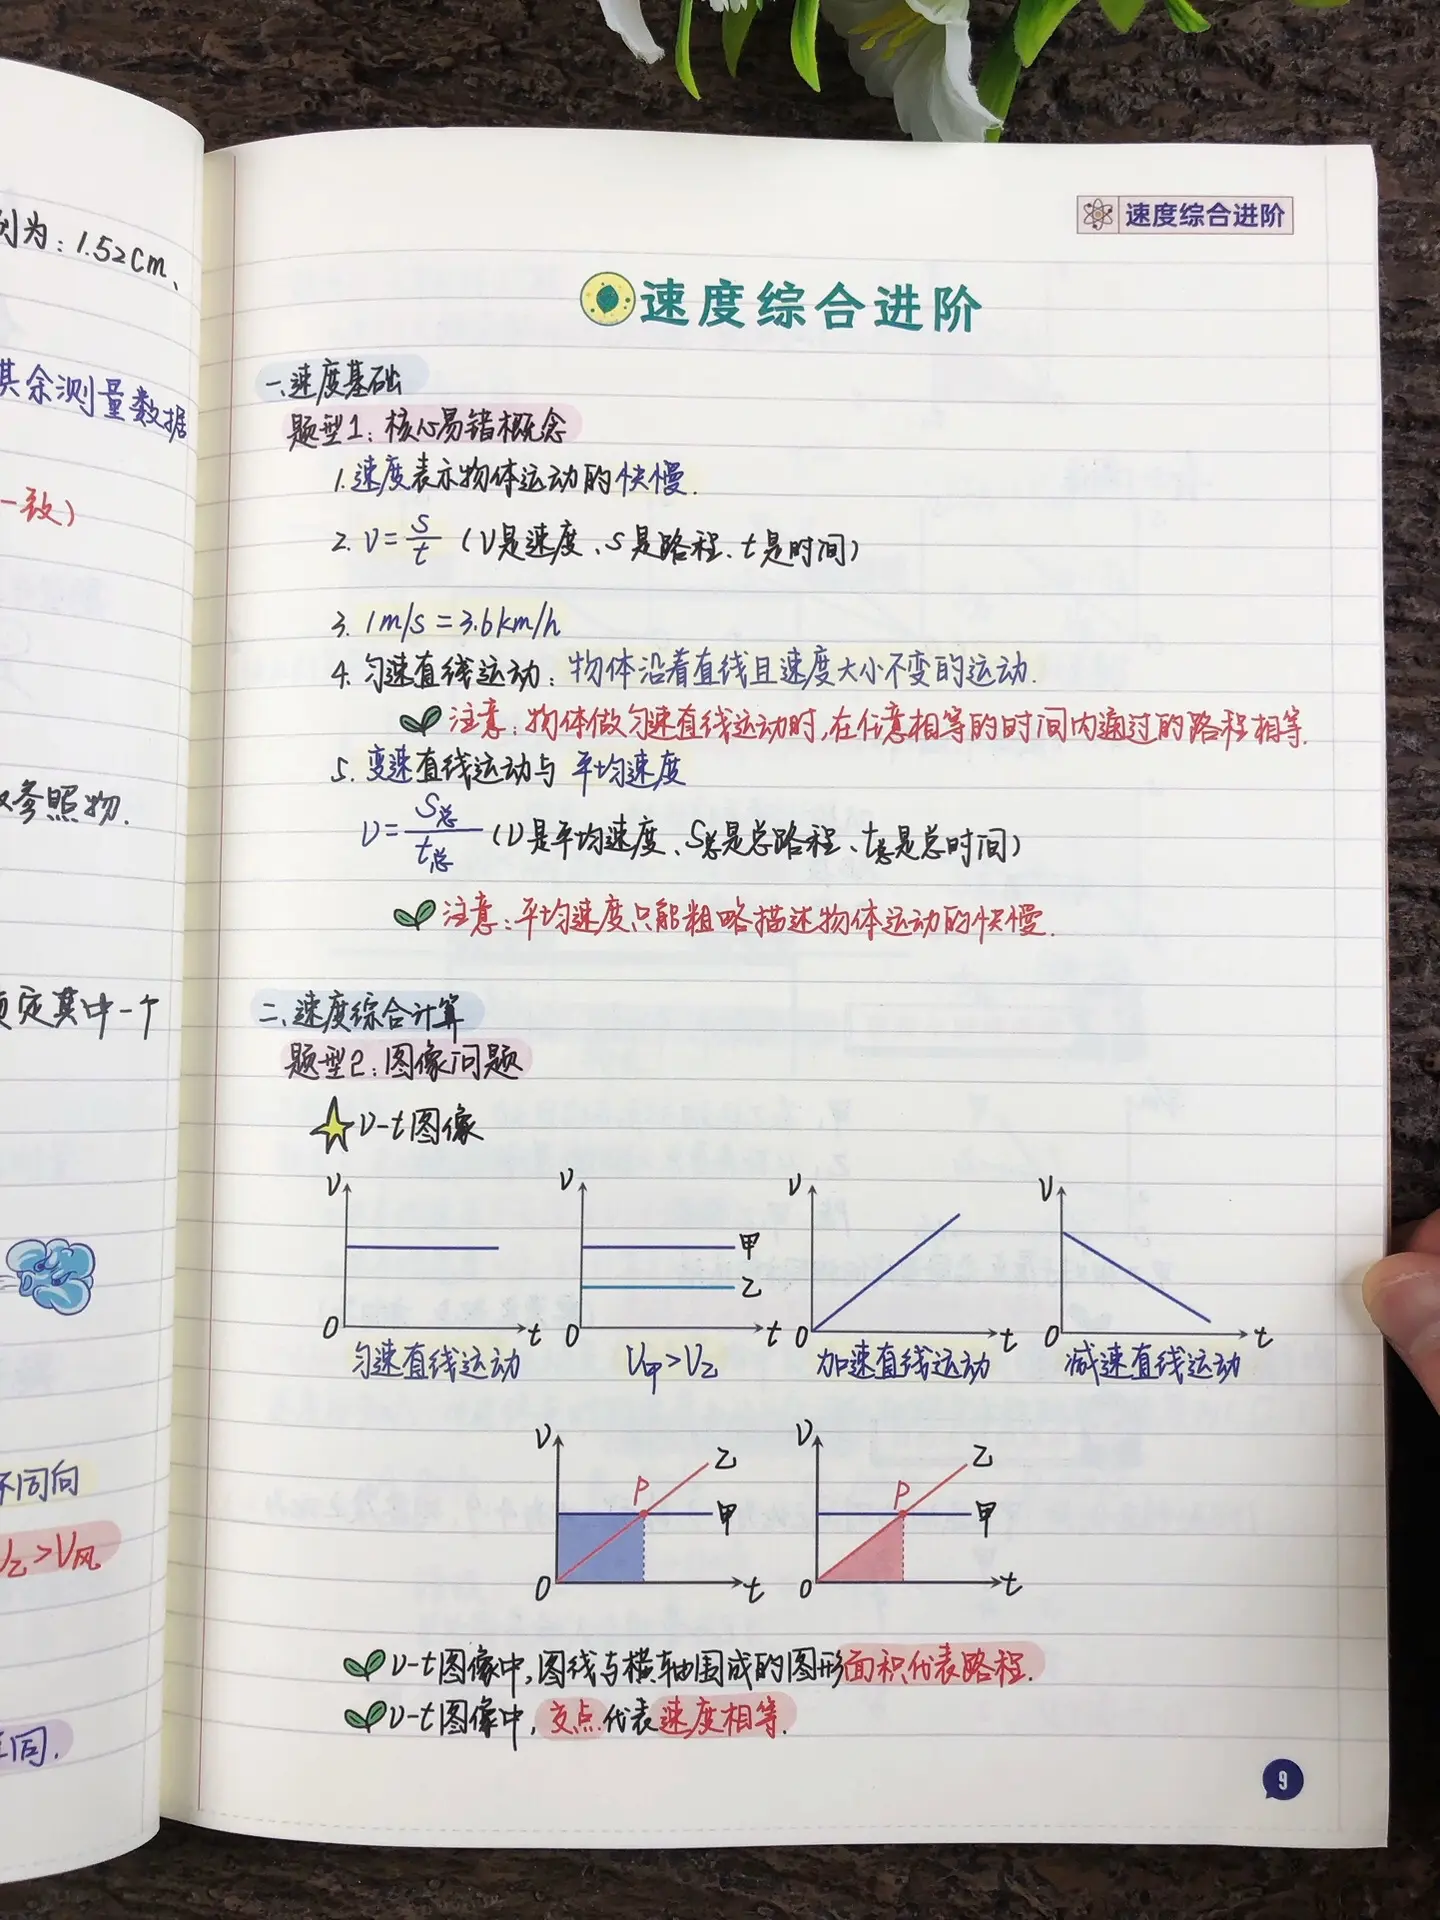 列为：1.52cm、
其余测量数据
一致）
参照物.
定其中一个
不同向
V乙>V风
同.
速度综合进阶
速度综合进阶
一、速度基础
题型1：核心易错概念
1.速度表示物体运动的快慢.
2. v=s/t（v是速度、s是路程、t是时间）
3. 1m/s=3.6km/h
4. 匀速直线运动：物体沿着直线且速度大小不变的运动.
注意：物体做匀速直线运动时,在任意相等的时间内通过的路程相等.
5. 变速直线运动与平均速度
v=s总/t总（v是平均速度、s总是总路程、t总是总时间）
注意：平均速度只能粗略描述物体运动的快慢.
二、速度综合计算
题型2：图像问题
v-t图像
v v v v
甲
乙
0 t 0 t 0 t 0 t
匀速直线运动 v甲>v乙 加速直线运动 减速直线运动
v 乙 v 乙
P 甲 P 甲
0 t 0 t
v-t图像中,图线与横轴围成的图形面积代表路程.
v-t图像中,交点代表速度相等.
9